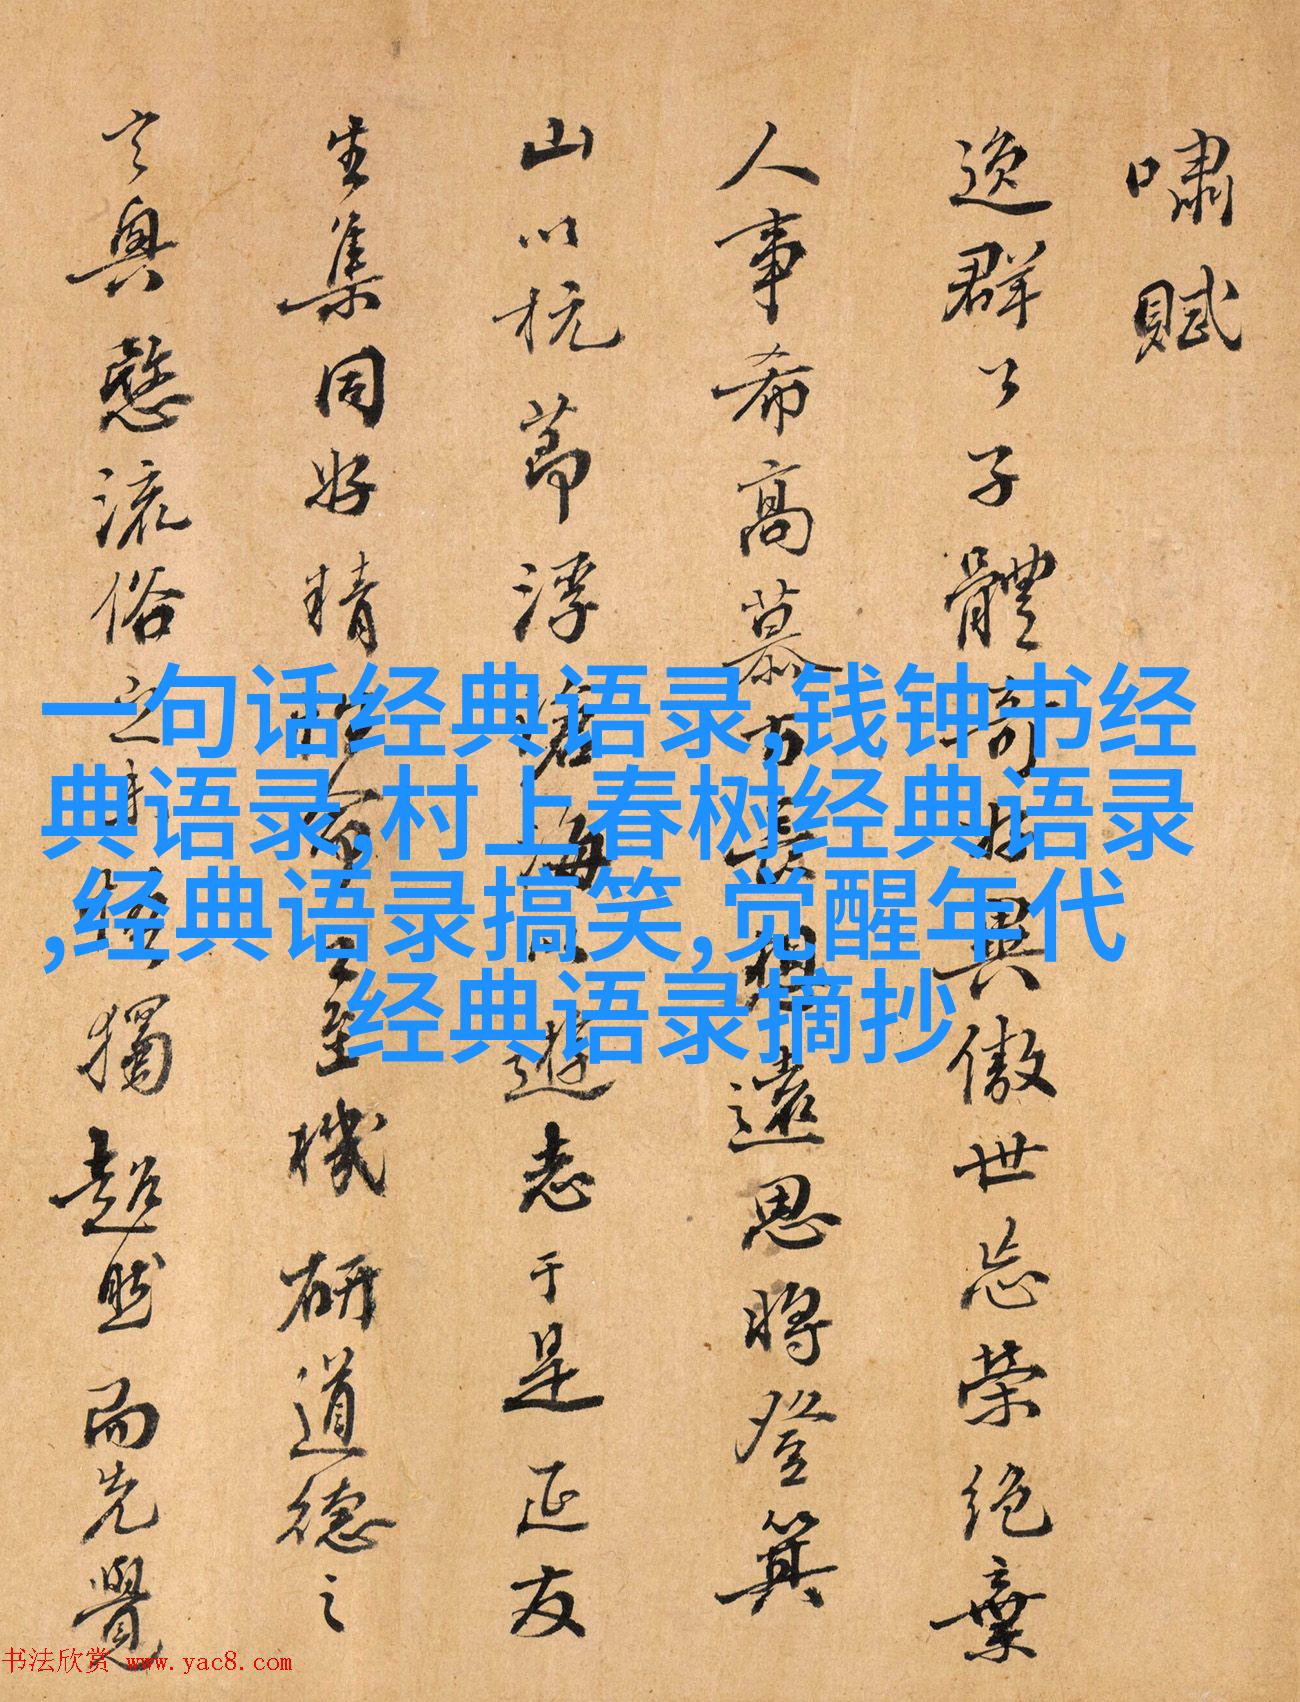 嘯賦
逸群公子體奇好異傲世忘榮絕棄
人事希高慕古長想遠思將登箕
山以抗節浮滄海以遊志于是延友
生集同好精性命之至機研道德之
玄奧愍流俗之未悟獨超然而先覺
一句话经典语录,钱钟书经
典语录,村上春树经典语录
,经典语录搞笑,觉醒年代
经典语录摘抄
书法欣赏 www.yac8.com